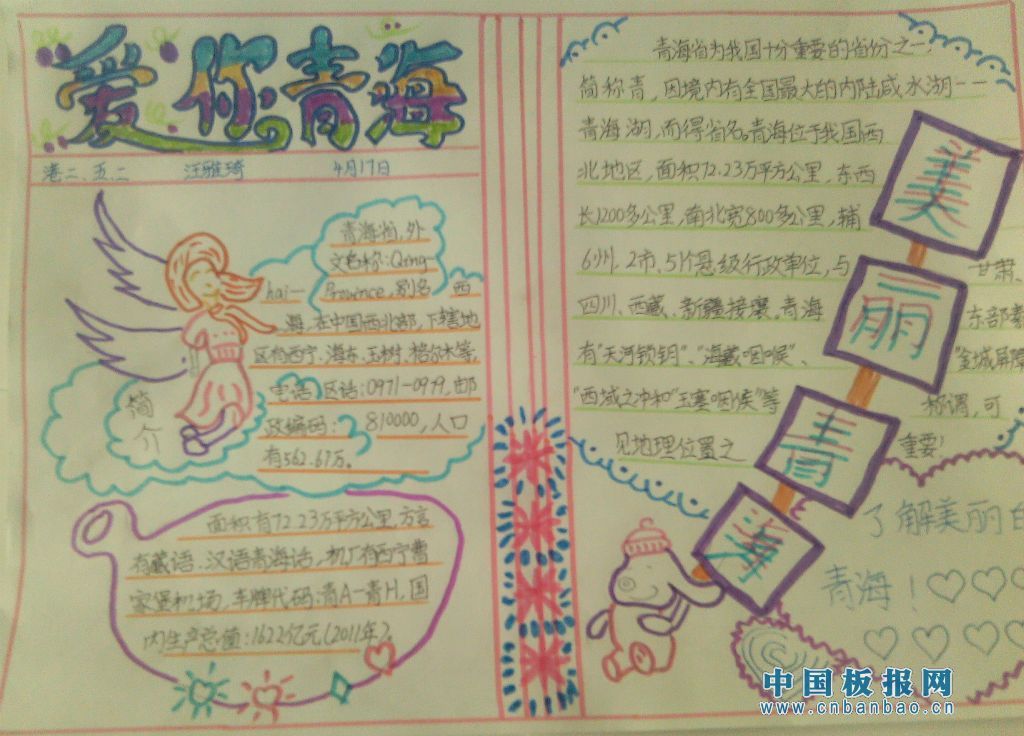 爱你青海
港二、五、二 汪雅琦 4月17日
青海省,外
文名称:Qing
hai— Province,别名 西
海,在中国西北部,下辖地
区有西宁、海东、玉树、格尔木等,
电话区话:0971—0979,邮
政编码:810000,人口
有562.67万。
简介
面积有72.23万平方公里,方言
有藏语、汉语青海话,机厂有西宁曹
家堡机场,车牌代码:青A—青H,国
内生产总值:1622亿元(2011年)。
青海省为我国十分重要的省份之一,
简称青,因境内有全国最大的内陆咸水湖——
青海湖,而得省名。青海位于我国西
北地区,面积72.23万平方公里,东西
长1200多公里,南北宽800多公里,辅
6州、2市、51个县级行政单位,与 甘肃、
四川、西藏、新疆接壤,青海 东部素
有“天河锁钥”、“海藏咽喉”、 “金城屏障”
“西域之冲和“玉塞咽侯”等 称谓,可
见地理位置之 重要!
美丽青海
了解美丽白
青海!
中国板报网
www.cnbanbao.cn